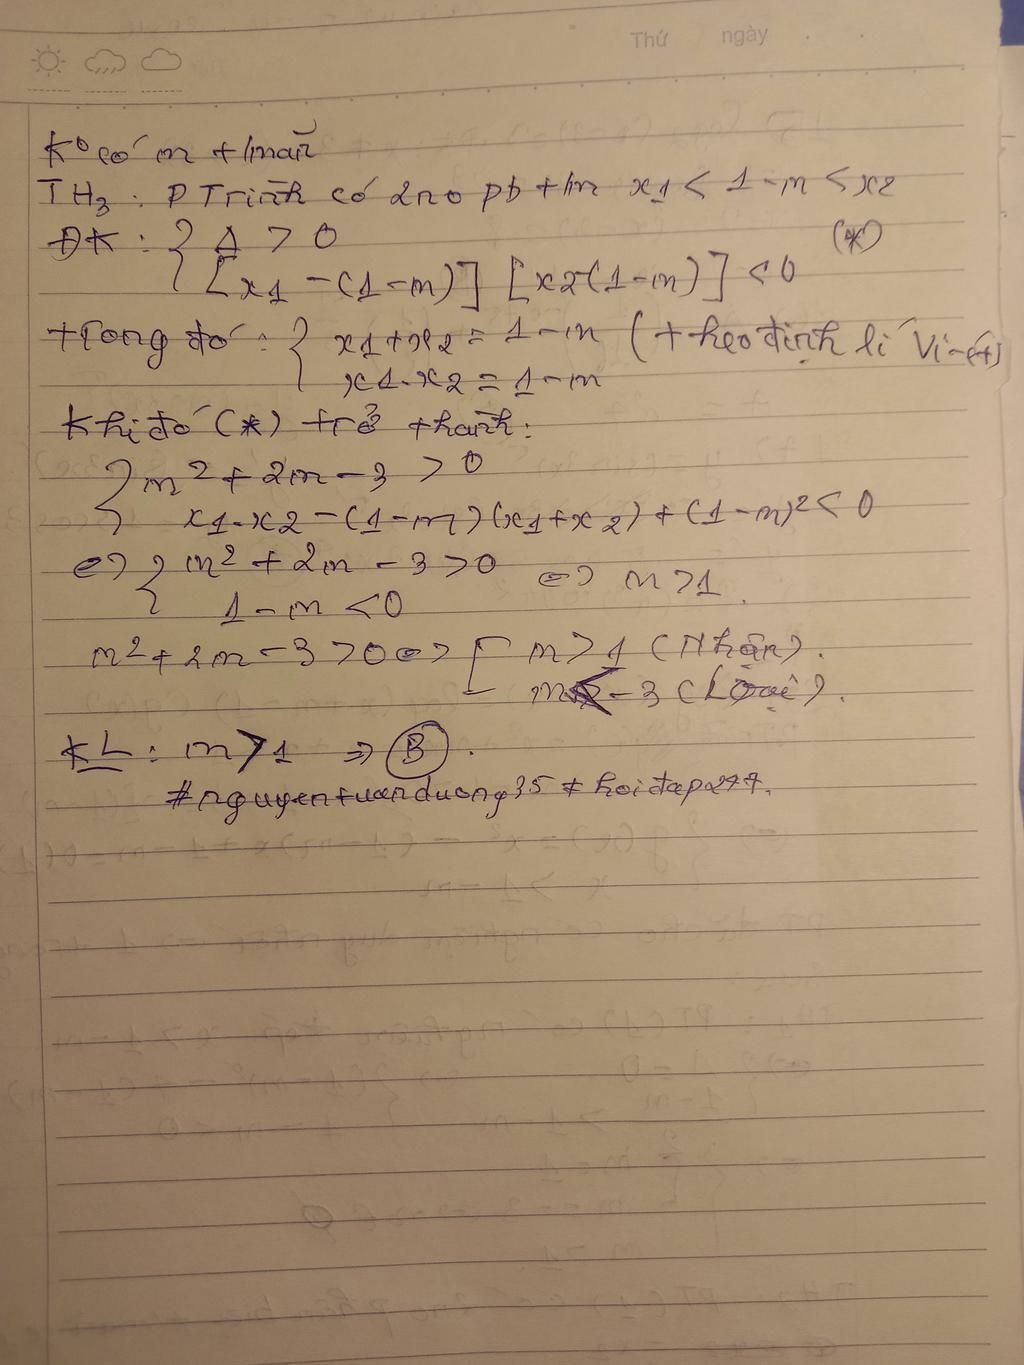 Thứ ngày . .
K° có m thoả mãn
TH3: PTrình có 2no pb t/m x1 < 1-m < x2
ĐK: { Δ > 0 (*)
[x1 - (1-m)] [x2(1-m)] < 0
trong đó: { x1+x2 = 1-m (theo định lí Vi-ét)
x1.x2 = 1-m
Khi đó (*) trở thành:
{ m² + 2m - 3 > 0
x1.x2 - (1-m)(x1+x2) + (1-m)² < 0
⇔ { m² + 2m - 3 > 0 ⇔ m > 1.
1-m < 0
m² + 2m - 3 > 0 ⇔ [ m > 1 (Nhận).
m < -3 (Loại).
KL: m > 1 ⇒ B.
#nguyentuanduong35 # hoiđap247.